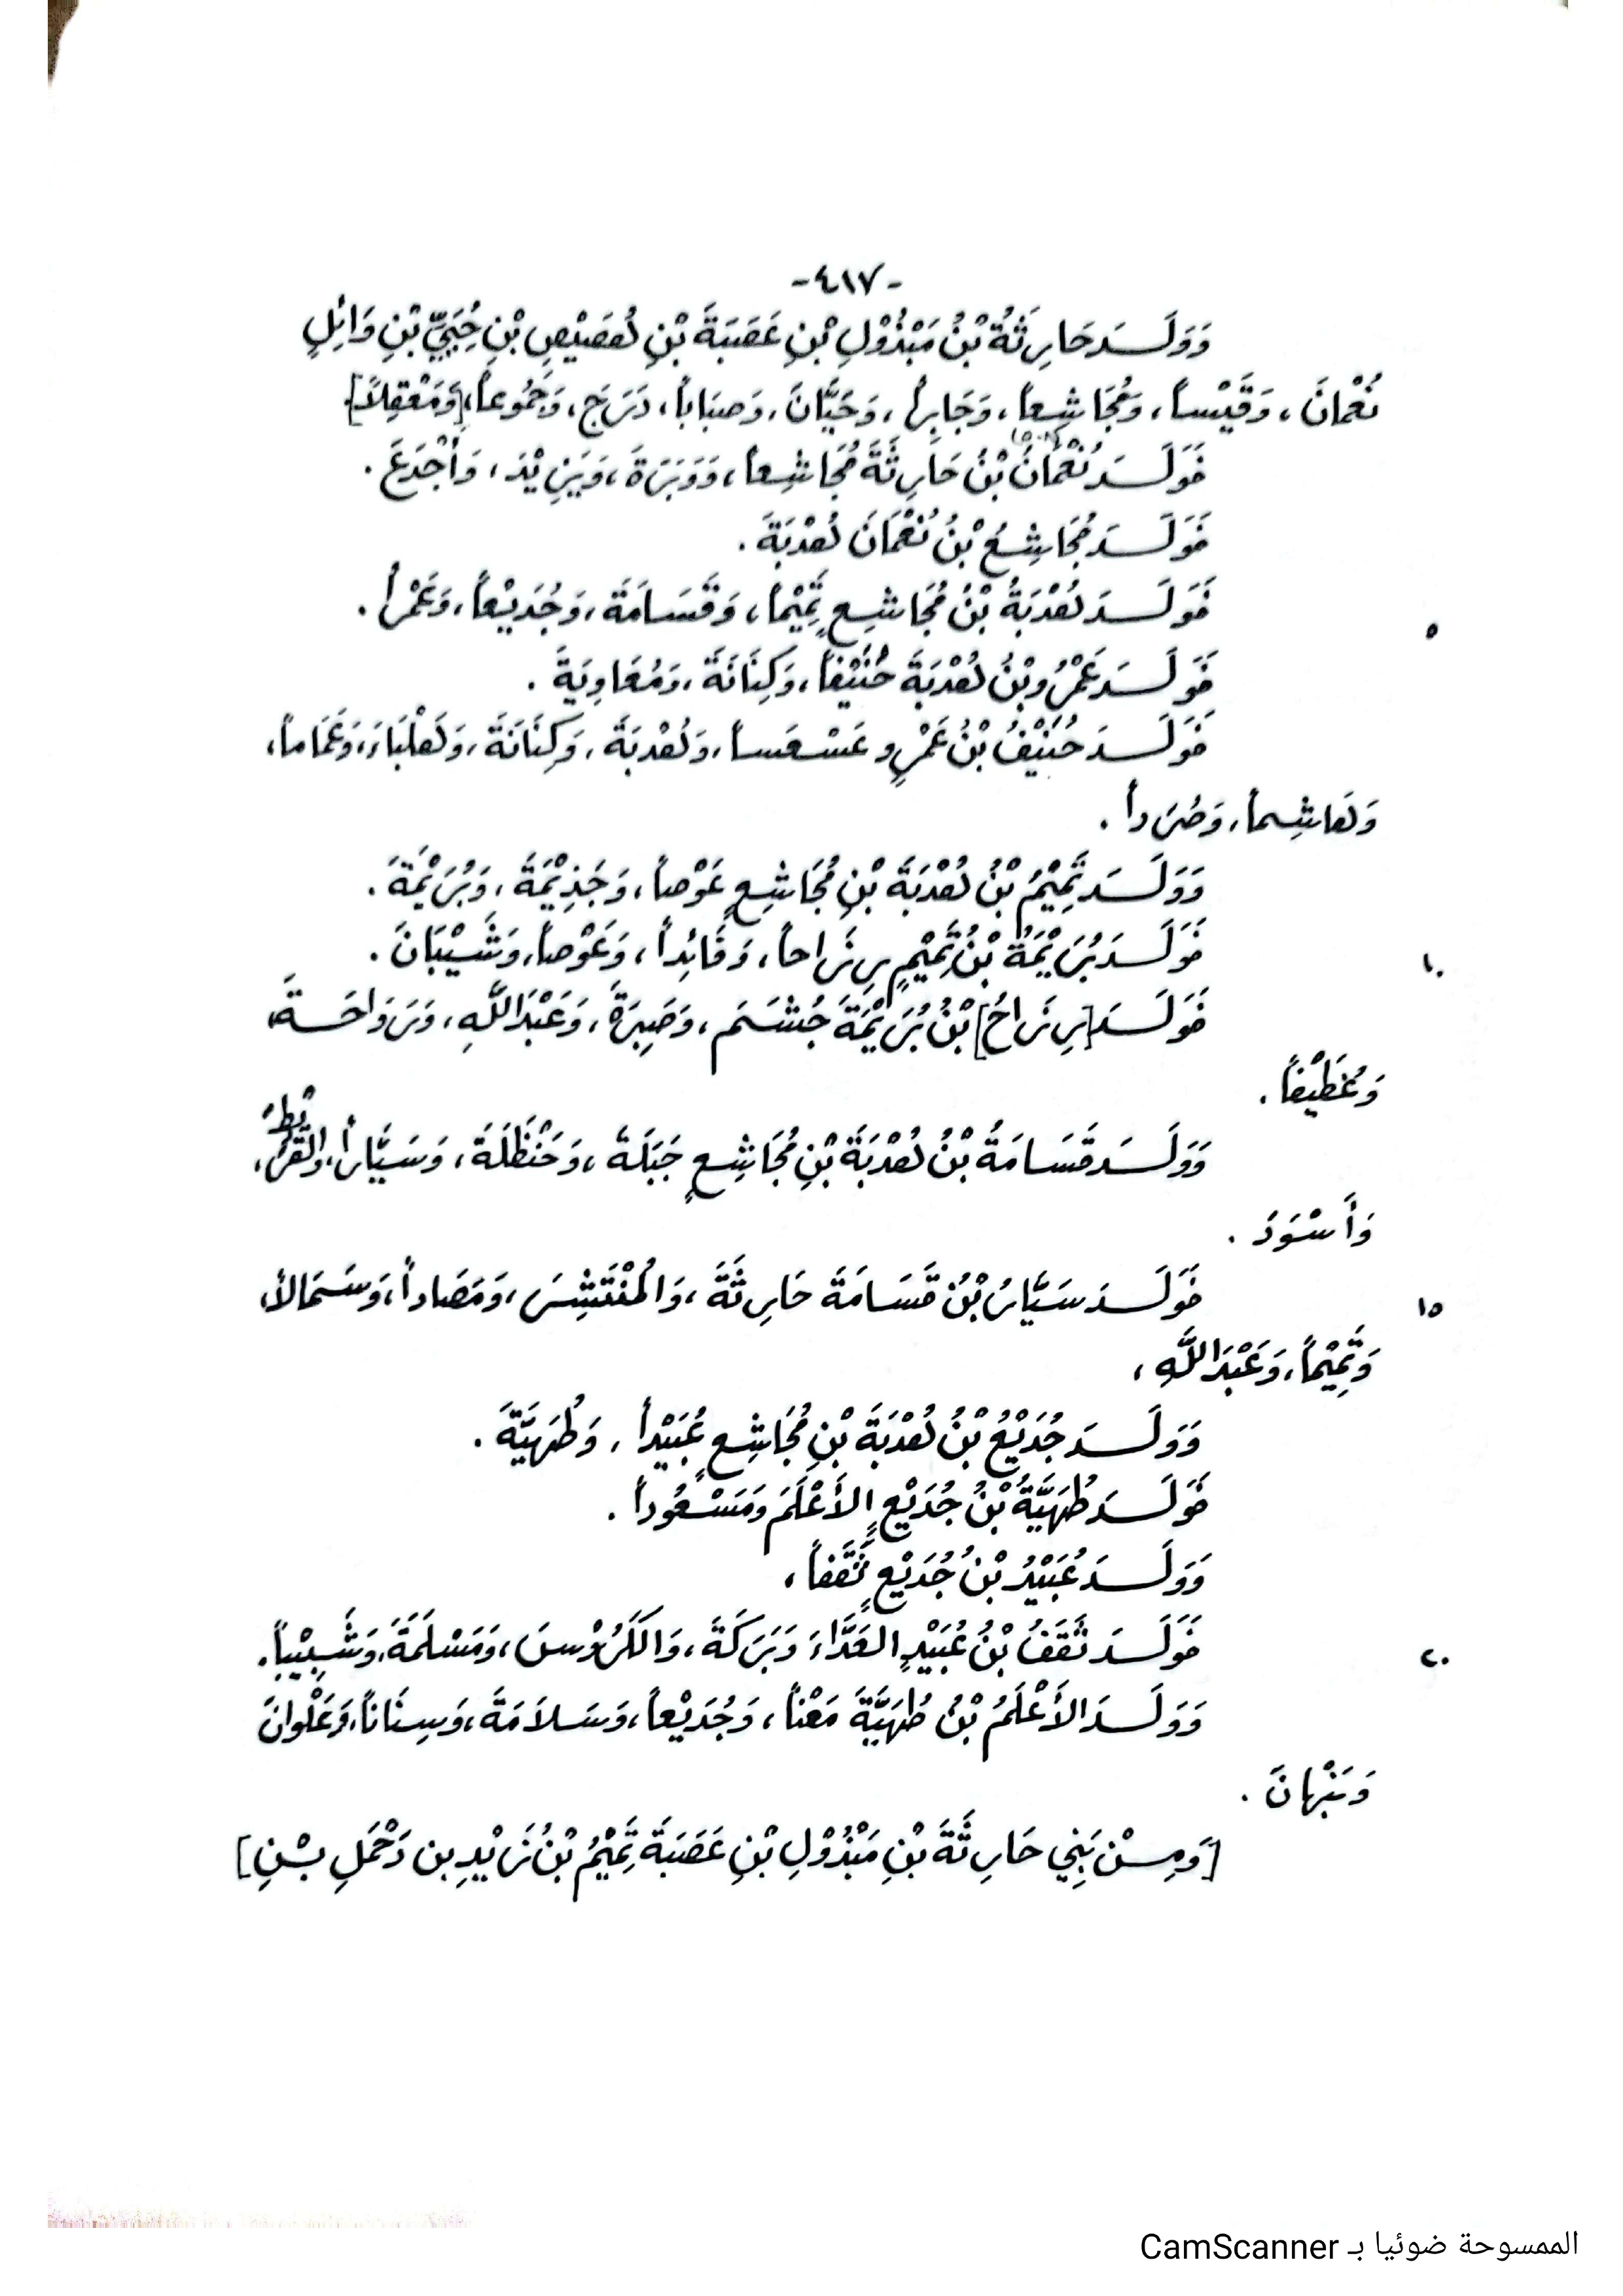 -٤١٧-
وَوَلَــدَ حَارِثَةُ بْنُ مَبْذُوْلِ بْنِ عَصَبَةَ بْنِ هُصَيْصِ بْنِ حُيَيِّ بْنِ وَائِلٍ
نُعْمَانَ، وَقَيْساً، وَمُجَاشِعاً، وَجَابِراً، وَحَيَّانَ، وَضِبَاباً، دَرَجَ، وَجَمُوعاً، [وَمَعْقِلاً]
فَوَلَــدَ نُعْمَانُ بْنُ حَارِثَةَ مُجَاشِعاً، وَوَبَرَةَ، وَيَزِيْدَ، وَأَجْدَعَ.
فَوَلَــدَ مُجَاشِعُ بْنُ نُعْمَانَ هُدْبَةَ.
فَوَلَــدَ هُدْبَةُ بْنُ مُجَاشِعٍ تَمِيْماً، وَقَسَامَةَ، وَجُدَيْعاً، وَعَمْراً.
٥
فَوَلَــدَ عَمْرُو بْنُ هُدْبَةَ حُنَيْفاً، وَكِنَانَةَ، وَمُعَاوِيَةَ.
فَوَلَــدَ حُنَيْفُ بْنُ عَمْرٍو عَسْعَساً، وَهُدْبَةَ، وَكِنَانَةَ، وَهَلْبَاءَ، وَعَمَاماً،
وَهَاشِماً، وَصُرَداً.
وَوَلَــدَ تَمِيْمُ بْنُ هُدْبَةَ بْنِ مُجَاشِعٍ عَوْصاً، وَجَذِيْمَةَ، وَبُرَيْمَةَ.
فَوَلَــدَ بُرَيْمَةُ بْنُ تَمِيْمٍ رِزَاحاً، وَقَائِداً، وَعَوْصاً، وَشَيْبَانَ.
١٠
فَوَلَــدَ [رِزَاحُ] بْنُ بُرَيْمَةَ جُشَــمَ، وَصَبِرَةَ، وَعَبْدَ اللَّهِ، وَرَوَاحَــةَ،
وَغُطَيْفاً.
وَوَلَــدَ قَسَامَةُ بْنُ هُدْبَةَ بْنِ مُجَاشِعٍ جَبَلَةَ، وَحَنْظَلَةَ، وَسَيَّاراً، وَالقُرَيْطَ،
وَأَسْوَدَ.
فَوَلَــدَ سَيَّارُ بْنُ قَسَامَةَ حَارِثَةَ، وَالمُنْتَشِــرَ، وَمَصَاداً، وَسَــمَّالاً،
١٥
وَتَمِيْماً، وَعَبْدَ اللَّهِ،
وَوَلَــدَ جُدَيْعُ بْنُ هُدْبَةَ بْنِ مُجَاشِعٍ عُبَيْداً، وَطُهَيَّةَ.
فَوَلَــدَ طُهَيَّةُ بْنُ جُدَيْعٍ الأَعْلَمَ وَمَسْــعُوداً.
وَوَلَــدَ عُبَيْدُ بْنُ جُدَيْعٍ ثَقَفاً،
فَوَلَــدَ ثَقَفُ بْنُ عُبَيْدٍ العَدَّاءَ وَبَرَكَةَ، وَالكَرَوَّسَ، وَمَسْلَمَةَ، وَشَبِيْباً.
٢٠
وَوَلَــدَ الأَعْلَمُ بْنُ طُهَيَّةَ مَعْناً، وَجُدَيْعاً، وَسَلاَمَةَ، وَسِنَاناً، وَعَلْوَانَ
وَنَبْهَانَ.
[وَمِــنْ بَنِي حَارِثَةَ بْنِ مَبْذُوْلِ بْنِ عَصَبَةَ تَمِيْمُ بْنُ زَيْدِ بن دَحْمَلِ بْــنِ]
الممسوحة ضوئيا بـ CamScanner